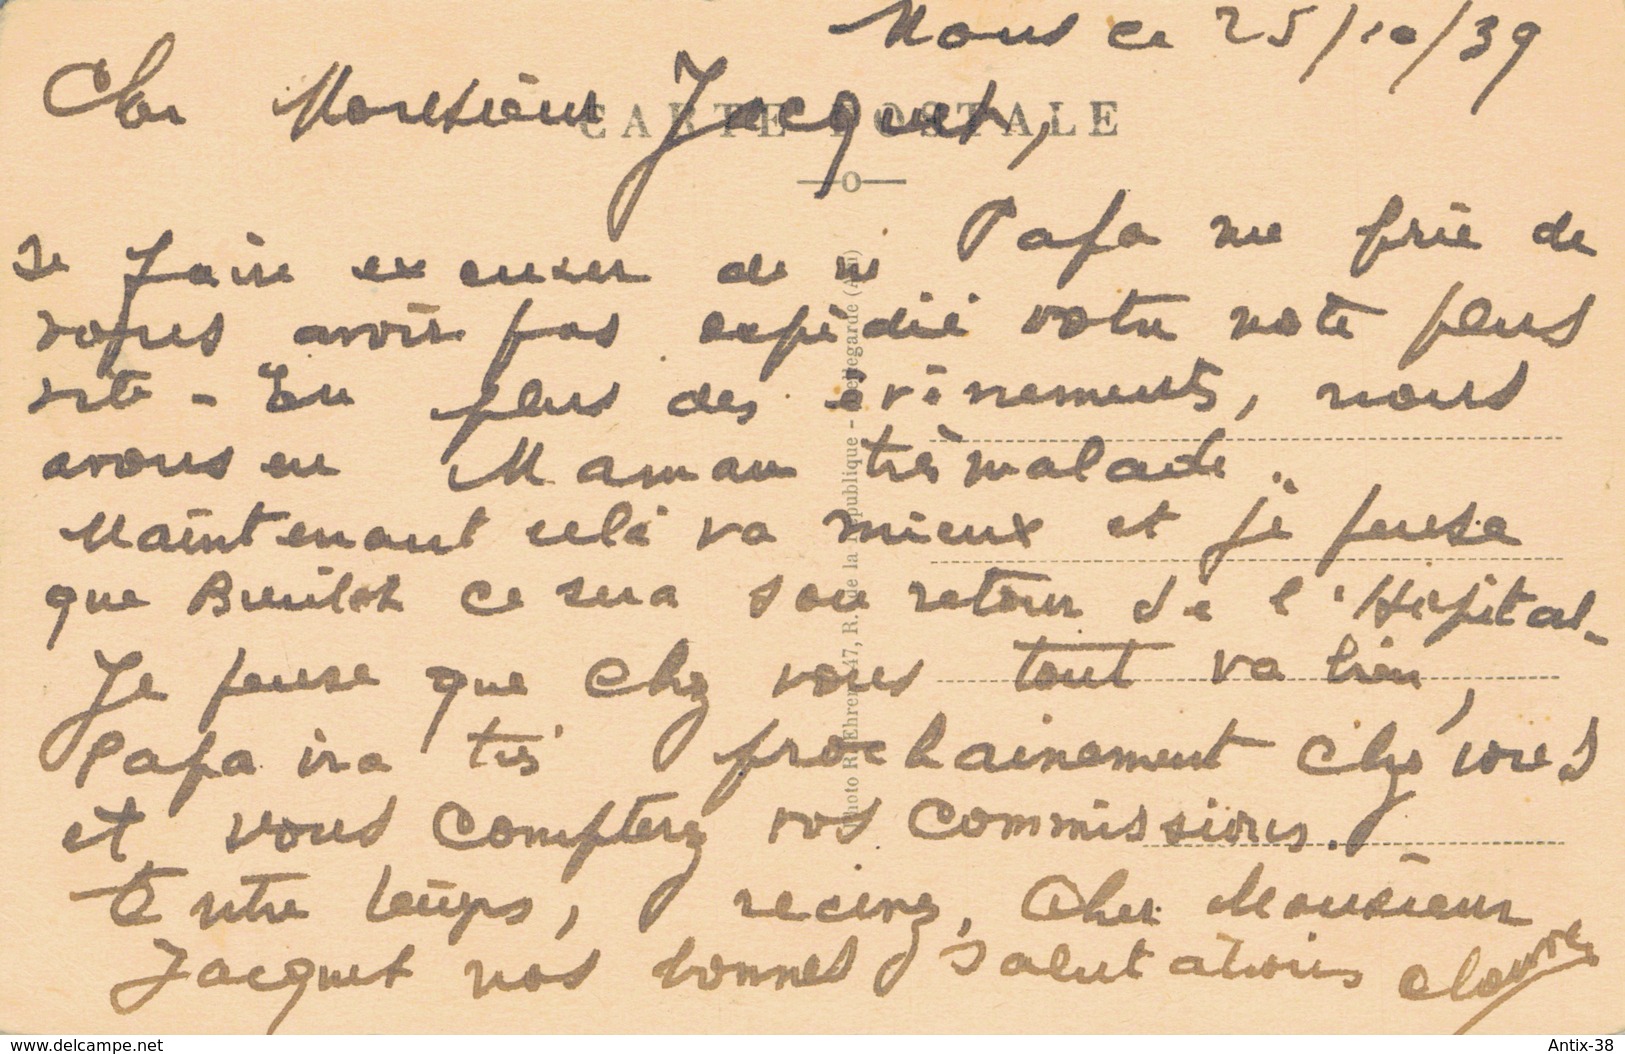 Mons ce 25/10/39
Cher Monsieur Jacquet,
CARTE POSTALE
Papa me prie de
le faire excuser de ne
vous avoir pas expédié votre note plus
vite - En plus des évènements, nous
avons eu Maman très malade.
Maintenant celà va mieux et je pense
que Bientôt ce sera son retour de l'Hôpital.
Je pense que chez vous tout va bien,
Papa ira très prochainement chez vous
et vous compterez vos commissions.
Entre temps, recevez, Cher Monsieur
Jacquet nos bonnes salutations
Photo R. Ehret, 47, R. de la République - Bellegarde (Ain)
www.delcampe.net
Antix-38